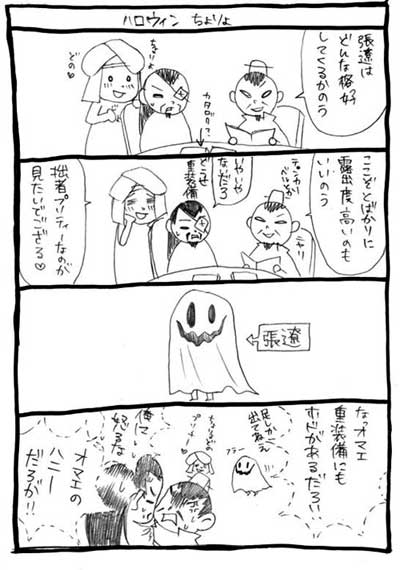 ハロウィン ちょりょ
張遼は
どんな格好
してくるかのう
ちょりょ
どの♡
カタログ?
ここぞとばかりに
露出度高いのも
いいのう
ニヤリ
いやーや
ないだろ
どうせ
重装備
拙者プリティーなのが
見たいでござる♡
張遼
なっオマエ
重装備にも
ホドがあるだろ!!
足しか
出てねえ
プラーン
俺に
怒るな
オマエの
ハニー
だろが!!